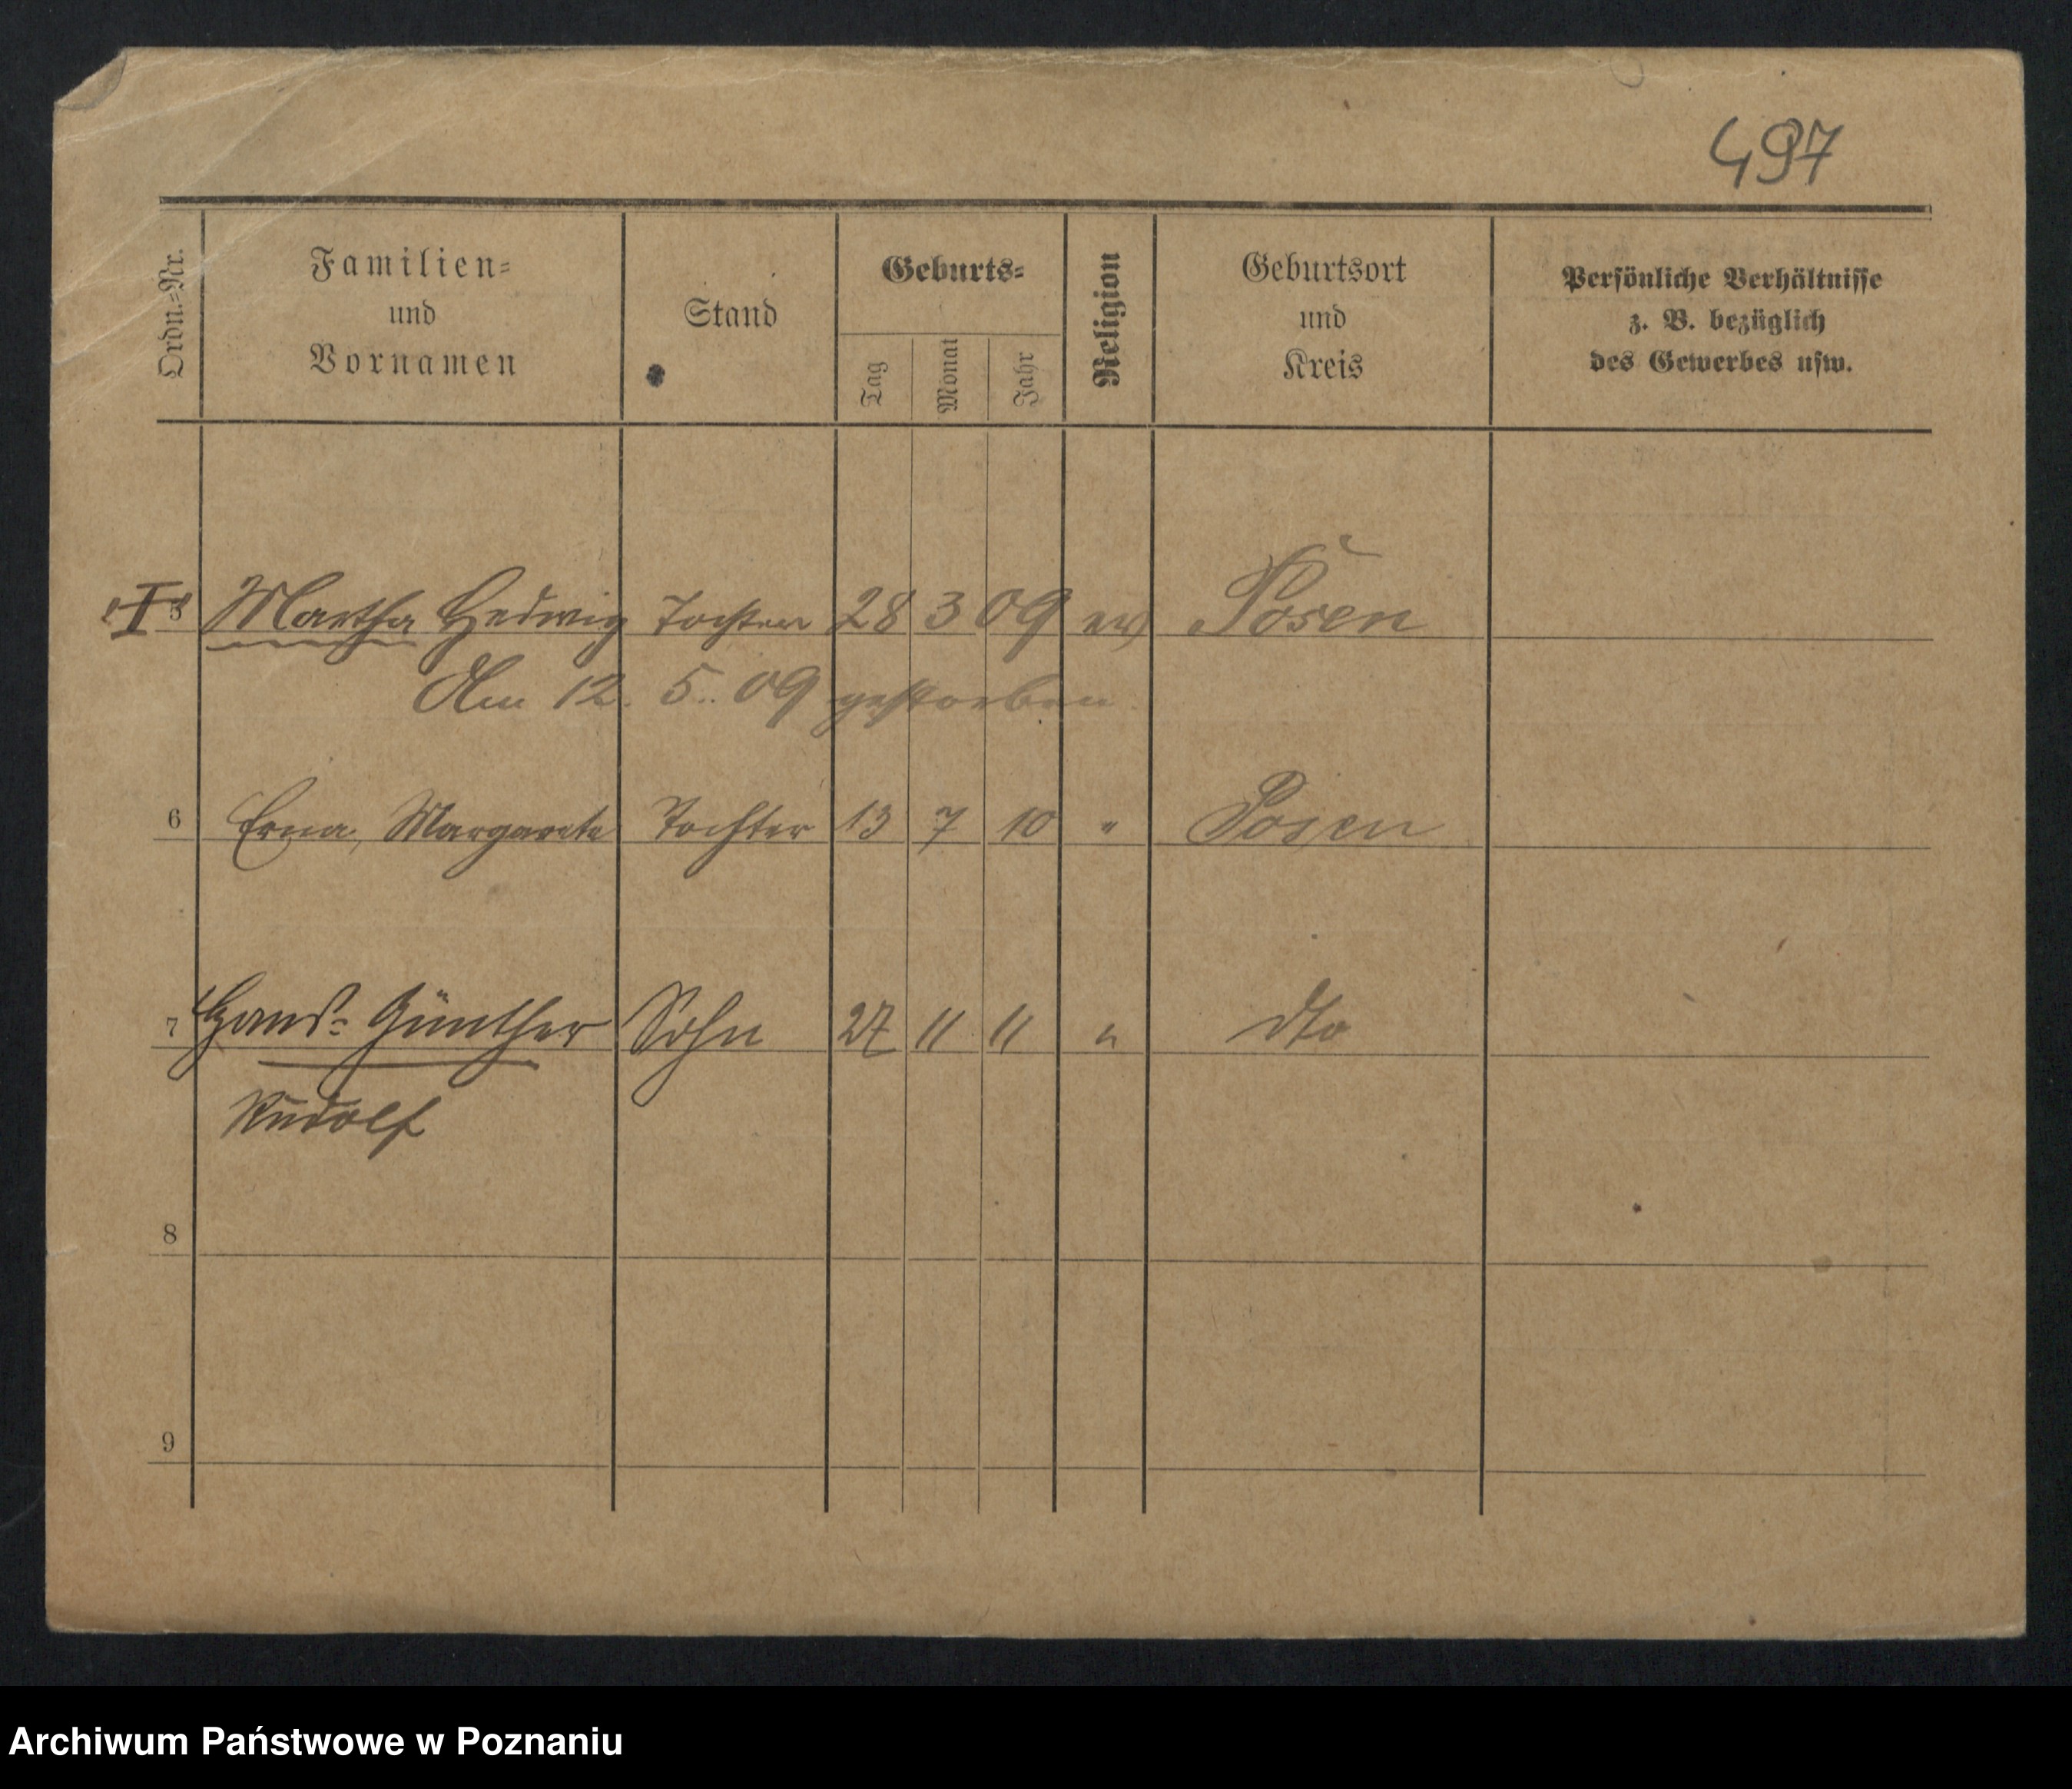 497
Ordn.-Nr.
Familien-
und
Vornamen
Stand
Geburts-
Tag
Monat
Jahr
Religion
Geburtsort
und
Kreis
Persönliche Verhältnisse
z. B. bezüglich
des Gewerbes usw.
5 Martha Hedwig Tochter 28 3 09 ev Posen
Am 12. 5. 09 gestorben.
6 Erna, Margarete Tochter 13 7 10 " Posen
7 Hans-Günther Sohn 27 11 11 " dto
Rudolf
8
9
Archiwum Państwowe w Poznaniu